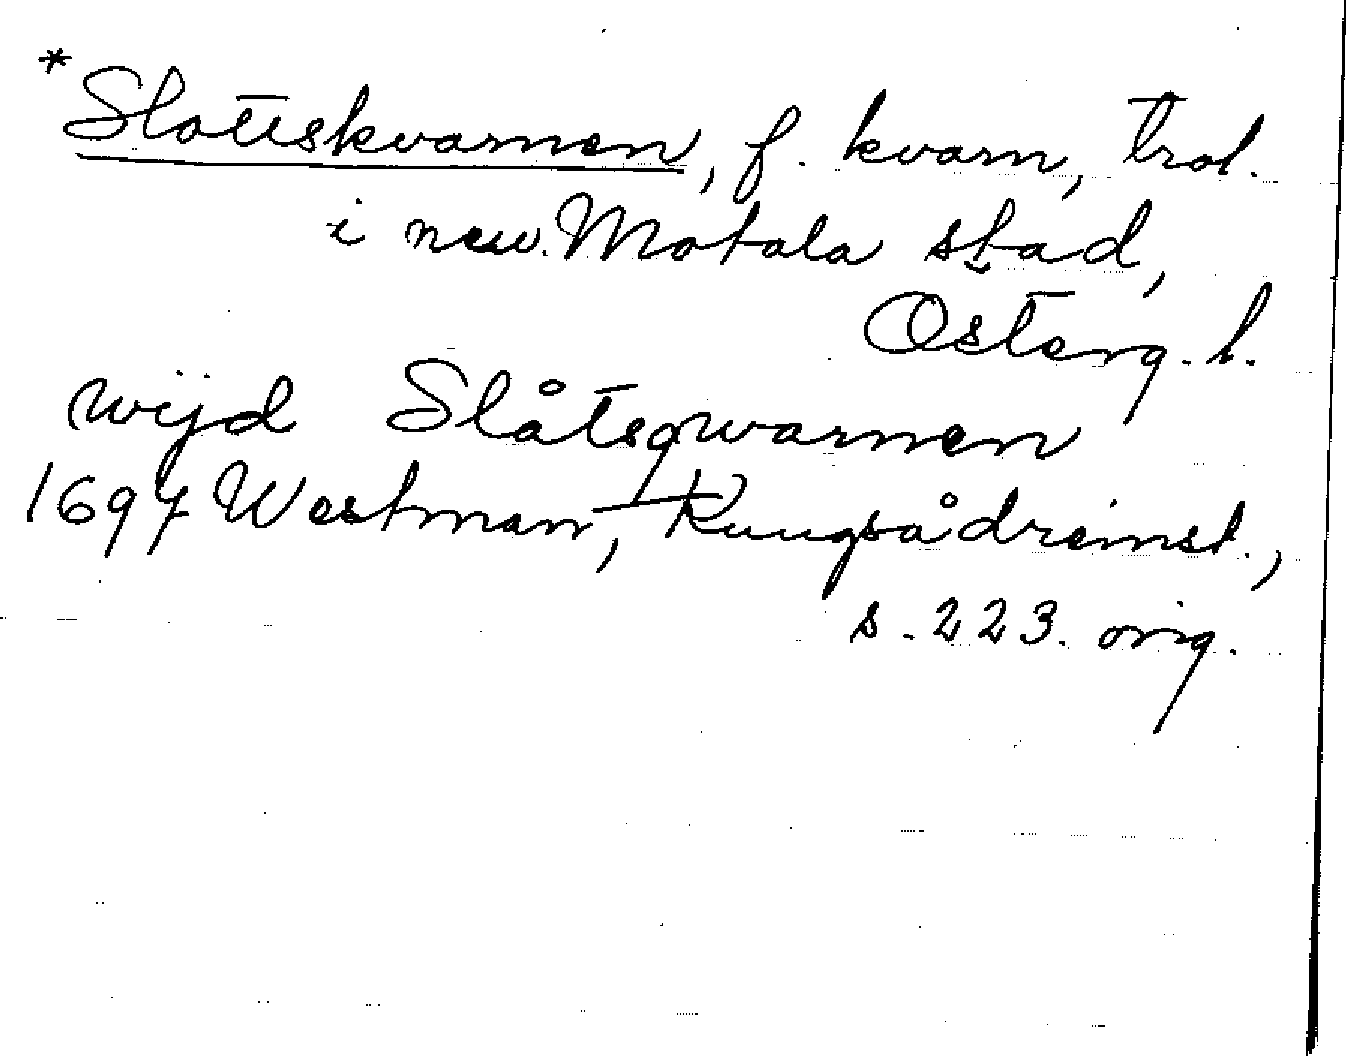 *Slottskvarnen, f. kvarn, trol.
i nuv. Motala stad,
Österg. l.
wijd Slåtsqwarnen
1697 Westman, Kungsådreinst.,
s. 223. orig.